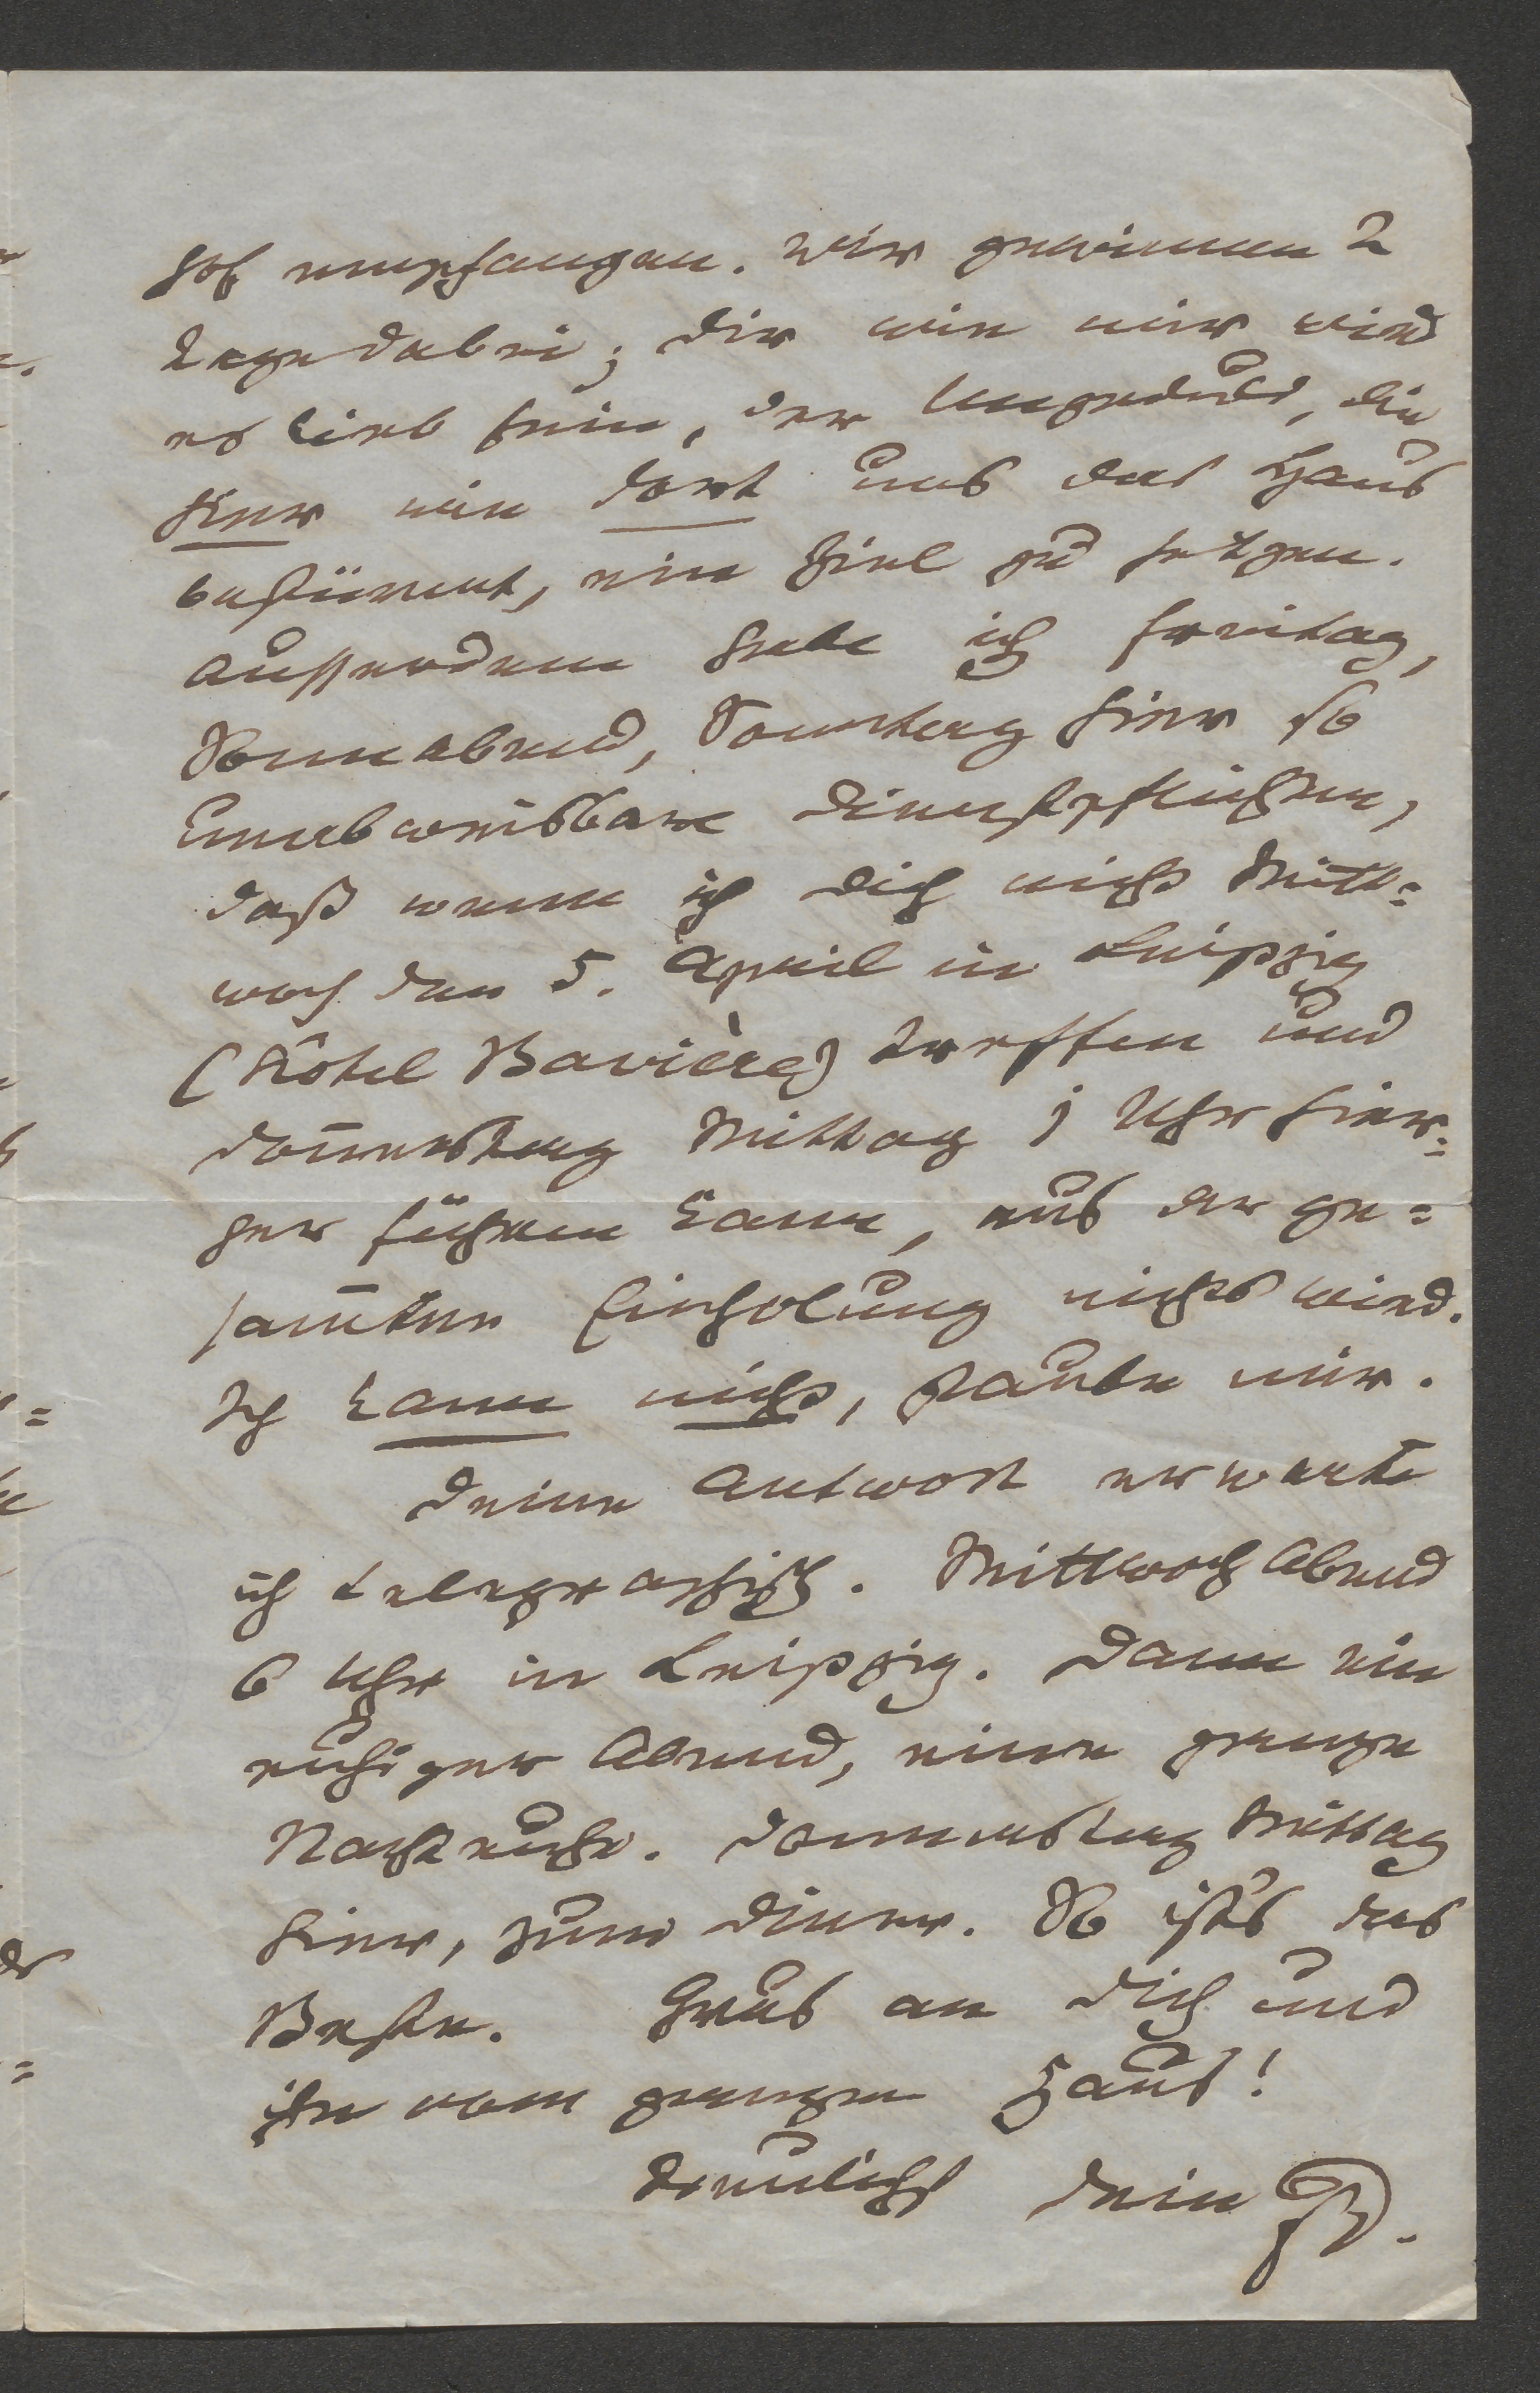 hof empfangen. Wir gewinnen 2
Tage dabei; Dir wie mir wird
es lieb sein, der Ungeduld, die
hier wie dort uns das Haus
bestürmt, ein Ziel zu setzen.
Ausserdem habe ich Freitag,
Sonnabend, Sonntag hier so
unabweisbare Dienstpflichten,
daß wenn ich Dich nicht Mitt=
woch den 5. April in Leipzig
(Hôtel Bavière) treffen und
Donnerstag Mittag 1 Uhr hier=
her führen kann, aus der ge=
sam̄ten Einholung nichts wird.
Ich kann nicht, glaube mir.
Deine Antwort erwarte
ich telegraphisch. Mittwoch Abend
6 Uhr in Leipzig. Dann ein
ruhiger Abend, eine ganze
Nachtruhe. Donnerstag Mittag
hier, zum Diner. So ist's das
Beste. Grus an Dich und
sie vom ganzen Haus!
Treulichst Dein